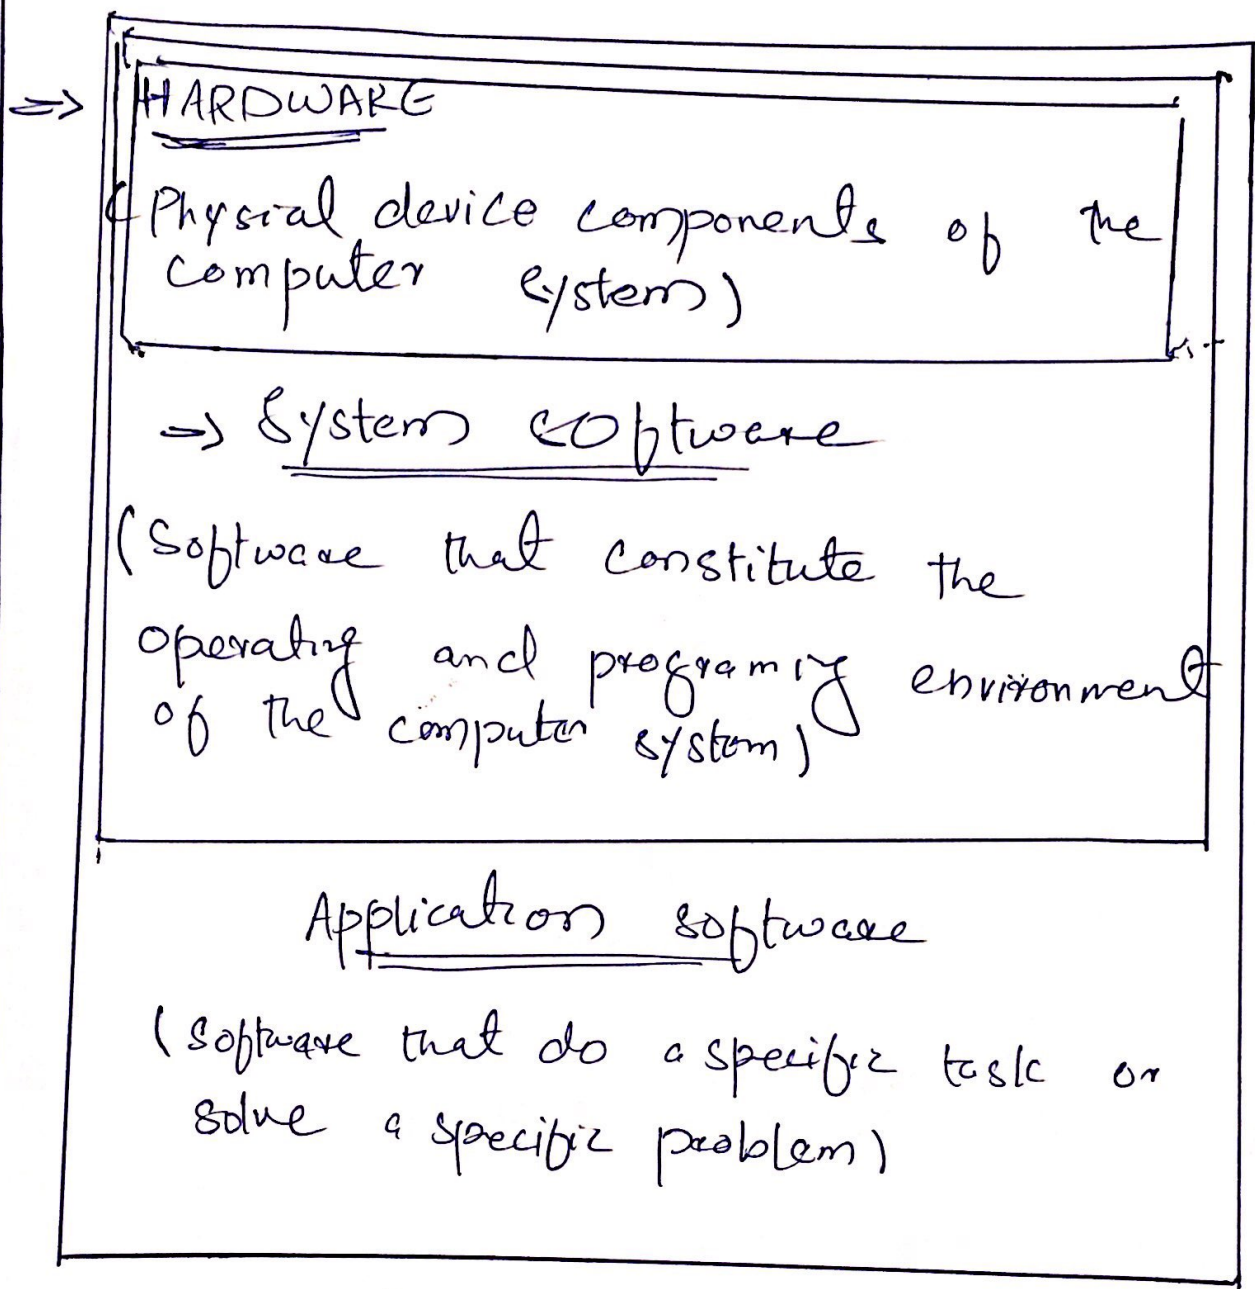 ⇒ HARDWARE
(Physial device components of the
computer system)
⇒ System software
(Software that constitute the
operating and programing environment
of the computer system)
Application software
(software that do a specific task or
solve a specific problem)